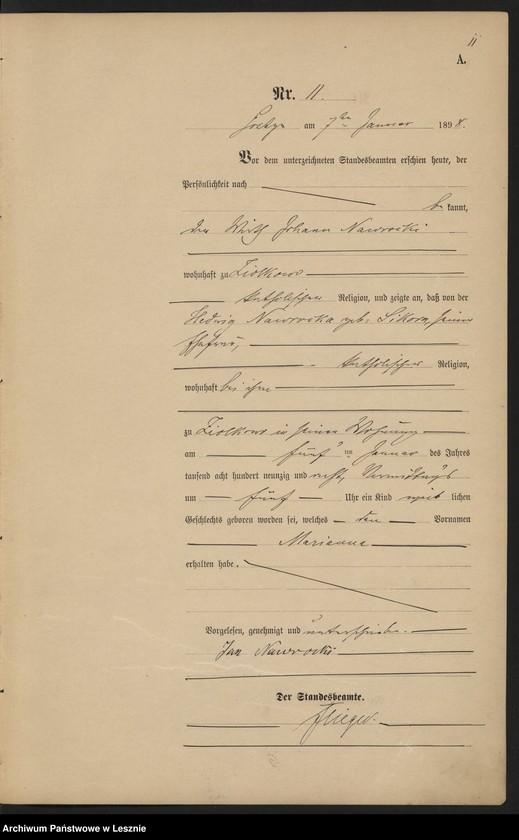 11
A.
Nr. 11.
am 7ten Januar 1898.
Vor dem unterzeichneten Standesbeamten erschien heute, der
Persönlichkeit nach
be kannt,
der Wirth Johann Nawrocki
wohnhaft zu Ziolkowo
katholischer Religion, und zeigte an, daß von der
Hedwig Nawrocka geb. Sikora, seiner
Ehefrau,
katholischer Religion,
wohnhaft bei ihm
zu Ziolkowo in seiner Wohnung
am fünften Januar des Jahres
tausend acht hundert neunzig und acht, Vormittags
um fünf Uhr ein Kind weib lichen
Geschlechts geboren worden sei, welches den Vornamen
Marianna
erhalten habe.
Vorgelesen, genehmigt und unterschrieben.
Jan Nawrocki
Der Standesbeamte.
Archiwum Państwowe w Lesznie